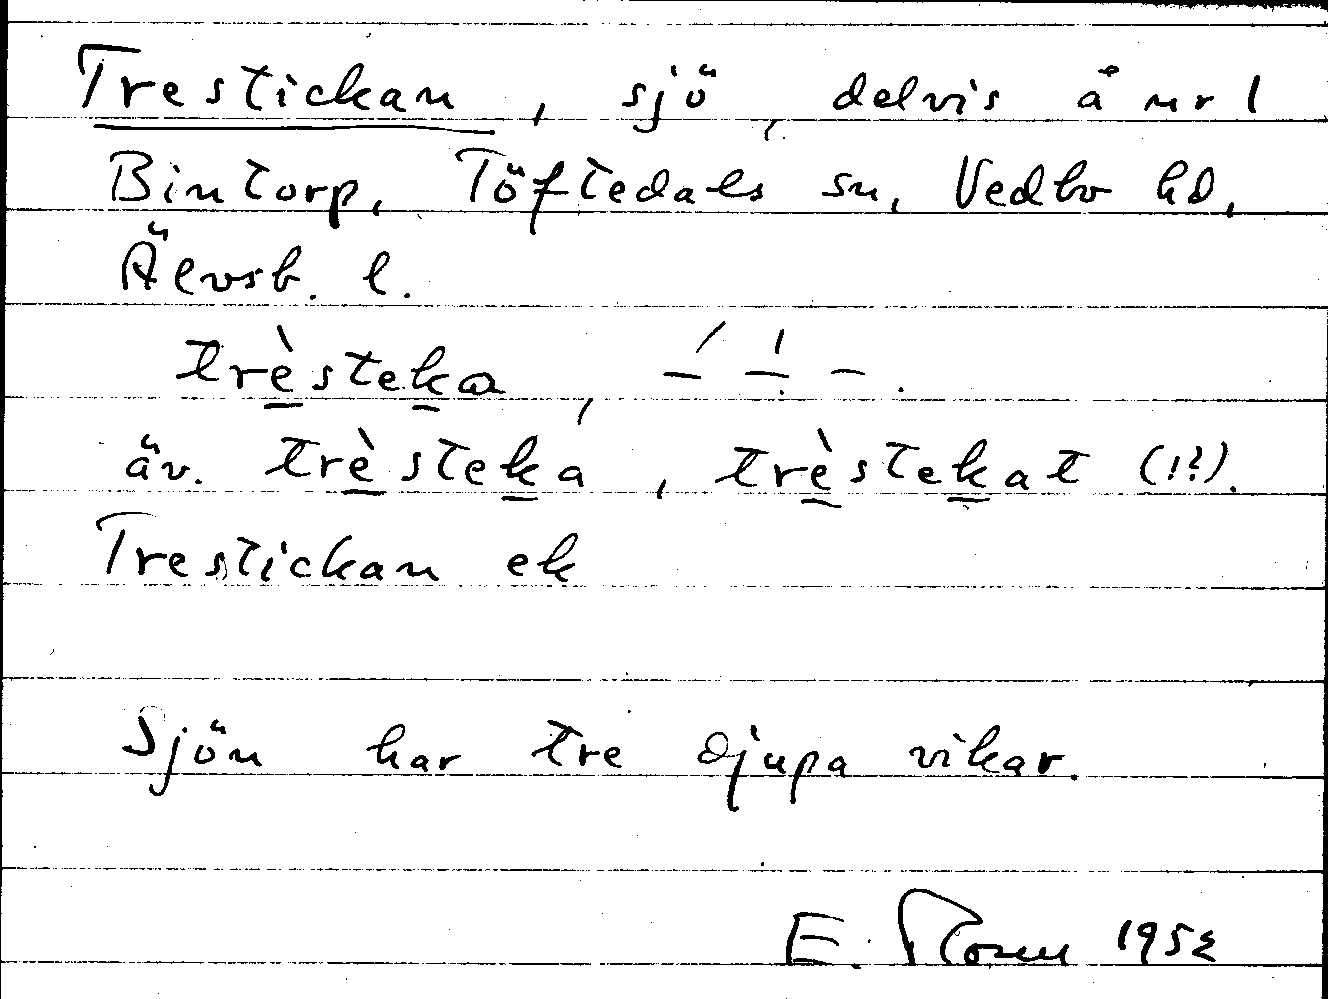 Trestickan, sjö, delvis å nr 1
Bintorp, Töftedals sn, Vedbo hd,
Älvsb. l.
trèsteka, – ́ – ̍ – .
äv. trèsteka, trèstekat (!?).
Trestickan ek
Sjön har tre djupa vikar.
E. 1952